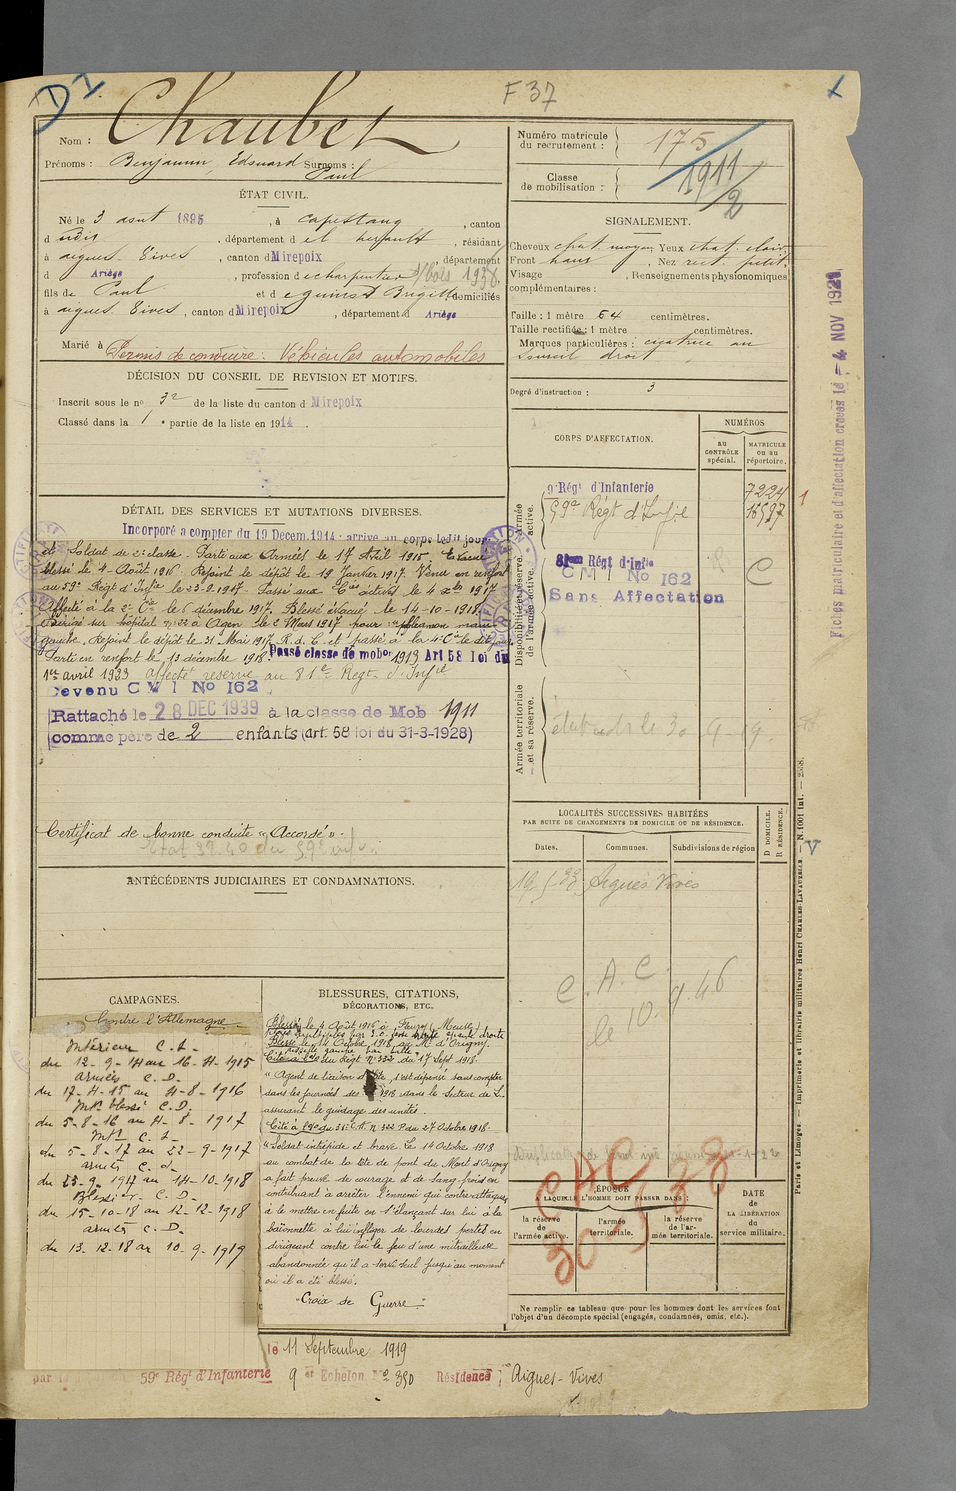 D I
F 37
Nom : Chaubet
Prénoms : Benjamin, Edouard Surnoms :
Paul
ÉTAT CIVIL.
Né le 3 août 1895, à Capestang, canton
d udis, département d el herault, résidant
à aigues-Vives, canton d Mirepoix, département
d Ariège, profession d e charpentier s/bois 1938.
fils de Paul et d e Brigitte domiciliés
à aigues Vives, canton d Mirepoix, département d Ariège
Marié à
Permis de conduire : Véhicules automobiles
DÉCISION DU CONSEIL DE REVISION ET MOTIFS.
Inscrit sous le no 32 de la liste du canton d Mirepoix
Classé dans la 1e partie de la liste en 1914.
DÉTAIL DES SERVICES ET MUTATIONS DIVERSES.
Incorporé a compter du 19 Decem. 1914 : arrive au corps ledit jour
et Soldat de 2e classe. Parti aux Armées le 17 Avril 1915. Evacué
blessé le 4 Août 1916. Rejoint le dépôt le 19 Janvier 1917. Venu en renfort
au 59e Régt d'Infie le 23-9-1917. Passé aux Cies actives le 4 Xbre 1917
Affecté à la 2e Cie le 6 décembre 1917. Blessé évacué le 14-10-1918.
Dirigé sur hôpital no 22 à Agen le 2 Mars 1917 pour phlegmon main
gauche. Rejoint le dépôt le 31 Mai 1917. R. d. C. et passé à la 4e Cie le dit jour.
Parti en renfort le 13 décembre 1918. Passé classe de mobon 1913 Art 58 loi du
1er avril 1923 affecté reserve au 81e Regt d'Infie
Devenu C M I No 162
Rattaché le 28 DEC 1939 à la classe de Mob 1911
comme père de 2 enfants (art. 58 loi du 31-3-1928)
Certificat de bonne conduite « Accordé » -
ANTÉCÉDENTS JUDICIAIRES ET CONDAMNATIONS.
CAMPAGNES.
Contre l'Allemagne
Intérieur C. S.
du 12-9-14 au 16-4-1915
armées C. D.
du 17-4-15 au 4-8-1916
Intr blessé C. D.
du 5-8-16 au 4-8-1917
Intr C. S.
du 5-8-17 au 22-9-1917
armées C. d.
du 23-9-1917 au 14-10-1918
Blessé Intr C. D.
du 15-10-18 au 12-12-1918
armées C. D.
du 13-12-18 au 10-9-1919
BLESSURES, CITATIONS,
DÉCORATIONS, ETC.
Blessé le 4 Août 1916 à Fleury (Meuse)
Plaies multiples par E. O. épaule droite
Blessé le 14 Octobre 1918 au Mt d'Origny
gauche par balle
Cité à l'O. du Régt No 332 du 17 Sept 1918.
« Agent de liaison d'élite, s'est dépensé sans compter
dans les journées des 1918 dans le secteur de L.
assurant le guidage des unités.
Cité à l'O. du 31e C. A. no 322 P. du 27 Octobre 1918.
« Soldat intrépide et brave. Le 14 Octobre 1918
au combat de la tête de pont du Mont d'Origny
a fait preuve de courage et de sang-froid en
contribuant à arrêter l'ennemi qui contre-attaquait,
à le mettre en fuite en s'élançant sur lui à la
baïonnette à lui infliger de lourdes pertes en
dirigeant contre lui le feu d'une mitrailleuse
abandonnée qu'il a servi seul jusqu'au moment
où il a été blessé.
"Croix de Guerre"
le 11 Septembre 1919
par 59e Régt d'Infanterie 9 et Echelon No 350 Résidence : Aigues-Vives
Numéro matricule
du recrutement : 175
Classe
de mobilisation : 1911/2
SIGNALEMENT.
Cheveux chat. moyen Yeux chat. clair.
Front haut, Nez rect. petit.
Visage , Renseignements physionomiques
complémentaires :
Taille : 1 mètre 64 centimètres.
Taille rectifiée : 1 mètre centimètres.
Marques particulières : cicatrice au
sourcil droit
Degré d'instruction : 3
CORPS D'AFFECTATION.
NUMÉROS
au
CONTRÔLE
spécial.
MATRICULE
ou au
répertoire.
Armée
active.
9e Régt d'Infanterie 7224
59e Régt d'Infie 16597
1
Disponibilité et réserve
de l'armée active.
81me Régt d'Infie
C M I No 162 C
Sans Affectation
Armée territoriale
et sa réserve.
LOCALITÉS SUCCESSIVES HABITÉES
PAR SUITE DE CHANGEMENTS DE DOMICILE OU DE RÉSIDENCE.
Dates.
Communes.
Subdivisions de région
D DOMICILE.
R RÉSIDENCE.
Aigues Vives
C. A. C.
le 10.9.46
CAC
ÉPOQUE
À LAQUELLE L'HOMME DOIT PASSER DANS :
la réserve
de
l'armée active.
l'armée
territoriale.
la réserve
de l'ar-
mée territoriale.
DATE
de
LA LIBÉRATION
du
service militaire.
Ne remplir ce tableau que pour les hommes dont les services font
l'objet d'un décompte spécial (engagés, condamnés, omis, etc.).
Fiches matriculaire et d'affectation créées le - 4 NOV 1929
Paris et Limoges. — Imprimerie et librairie militaires Henri CHARLES-LAVAUZELLE. — N. 1001 int. — 2558.